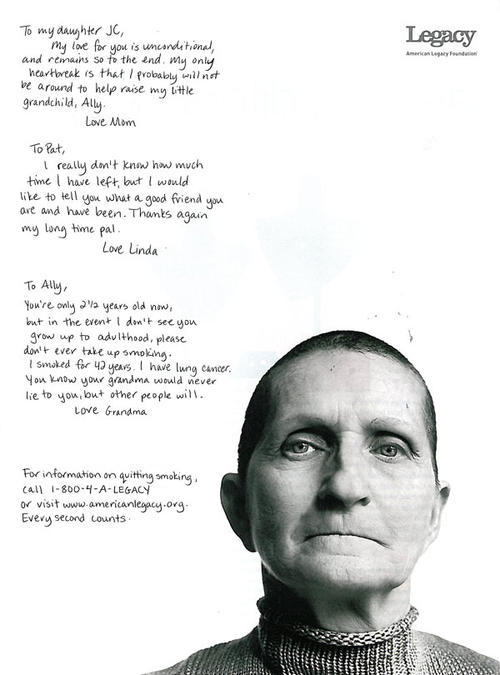 To my daughter JC,
My love for you is unconditional,
and remains so to the end. My only
heartbreak is that I probably will not
be around to help raise my little
grandchild, Ally.
Love Mom
To Pat,
I really don't know how much
time I have left, but I would
like to tell you what a good friend you
are and have been. Thanks again
my long time pal.
Love Linda
To Ally,
You're only 2 1/2 years old now,
but in the event I don't see you
grow up to adulthood, please
don't ever take up smoking.
I smoked for 42 years. I have lung cancer.
You know your grandma would never
lie to you, but other people will.
Love Grandma
For information on quitting smoking,
call 1-800-4-A-LEGACY
or visit www.americanlegacy.org.
Every second counts.
Legacy
American Legacy Foundation